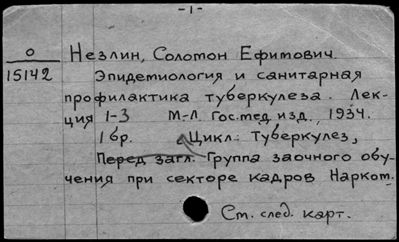 -1-
О
15142
Незлин, Соломон Ефимович.
Эпидемиология и санитарная
профилактика туберкулеза. Лек-
ция 1-3 М-Л. Гос.мед.изд., 1934.
1 бр. Цикл: Туберкулез,
Перед загл. Группа заочного обу-
чения при секторе кадров Наркот.
См. след. карт.